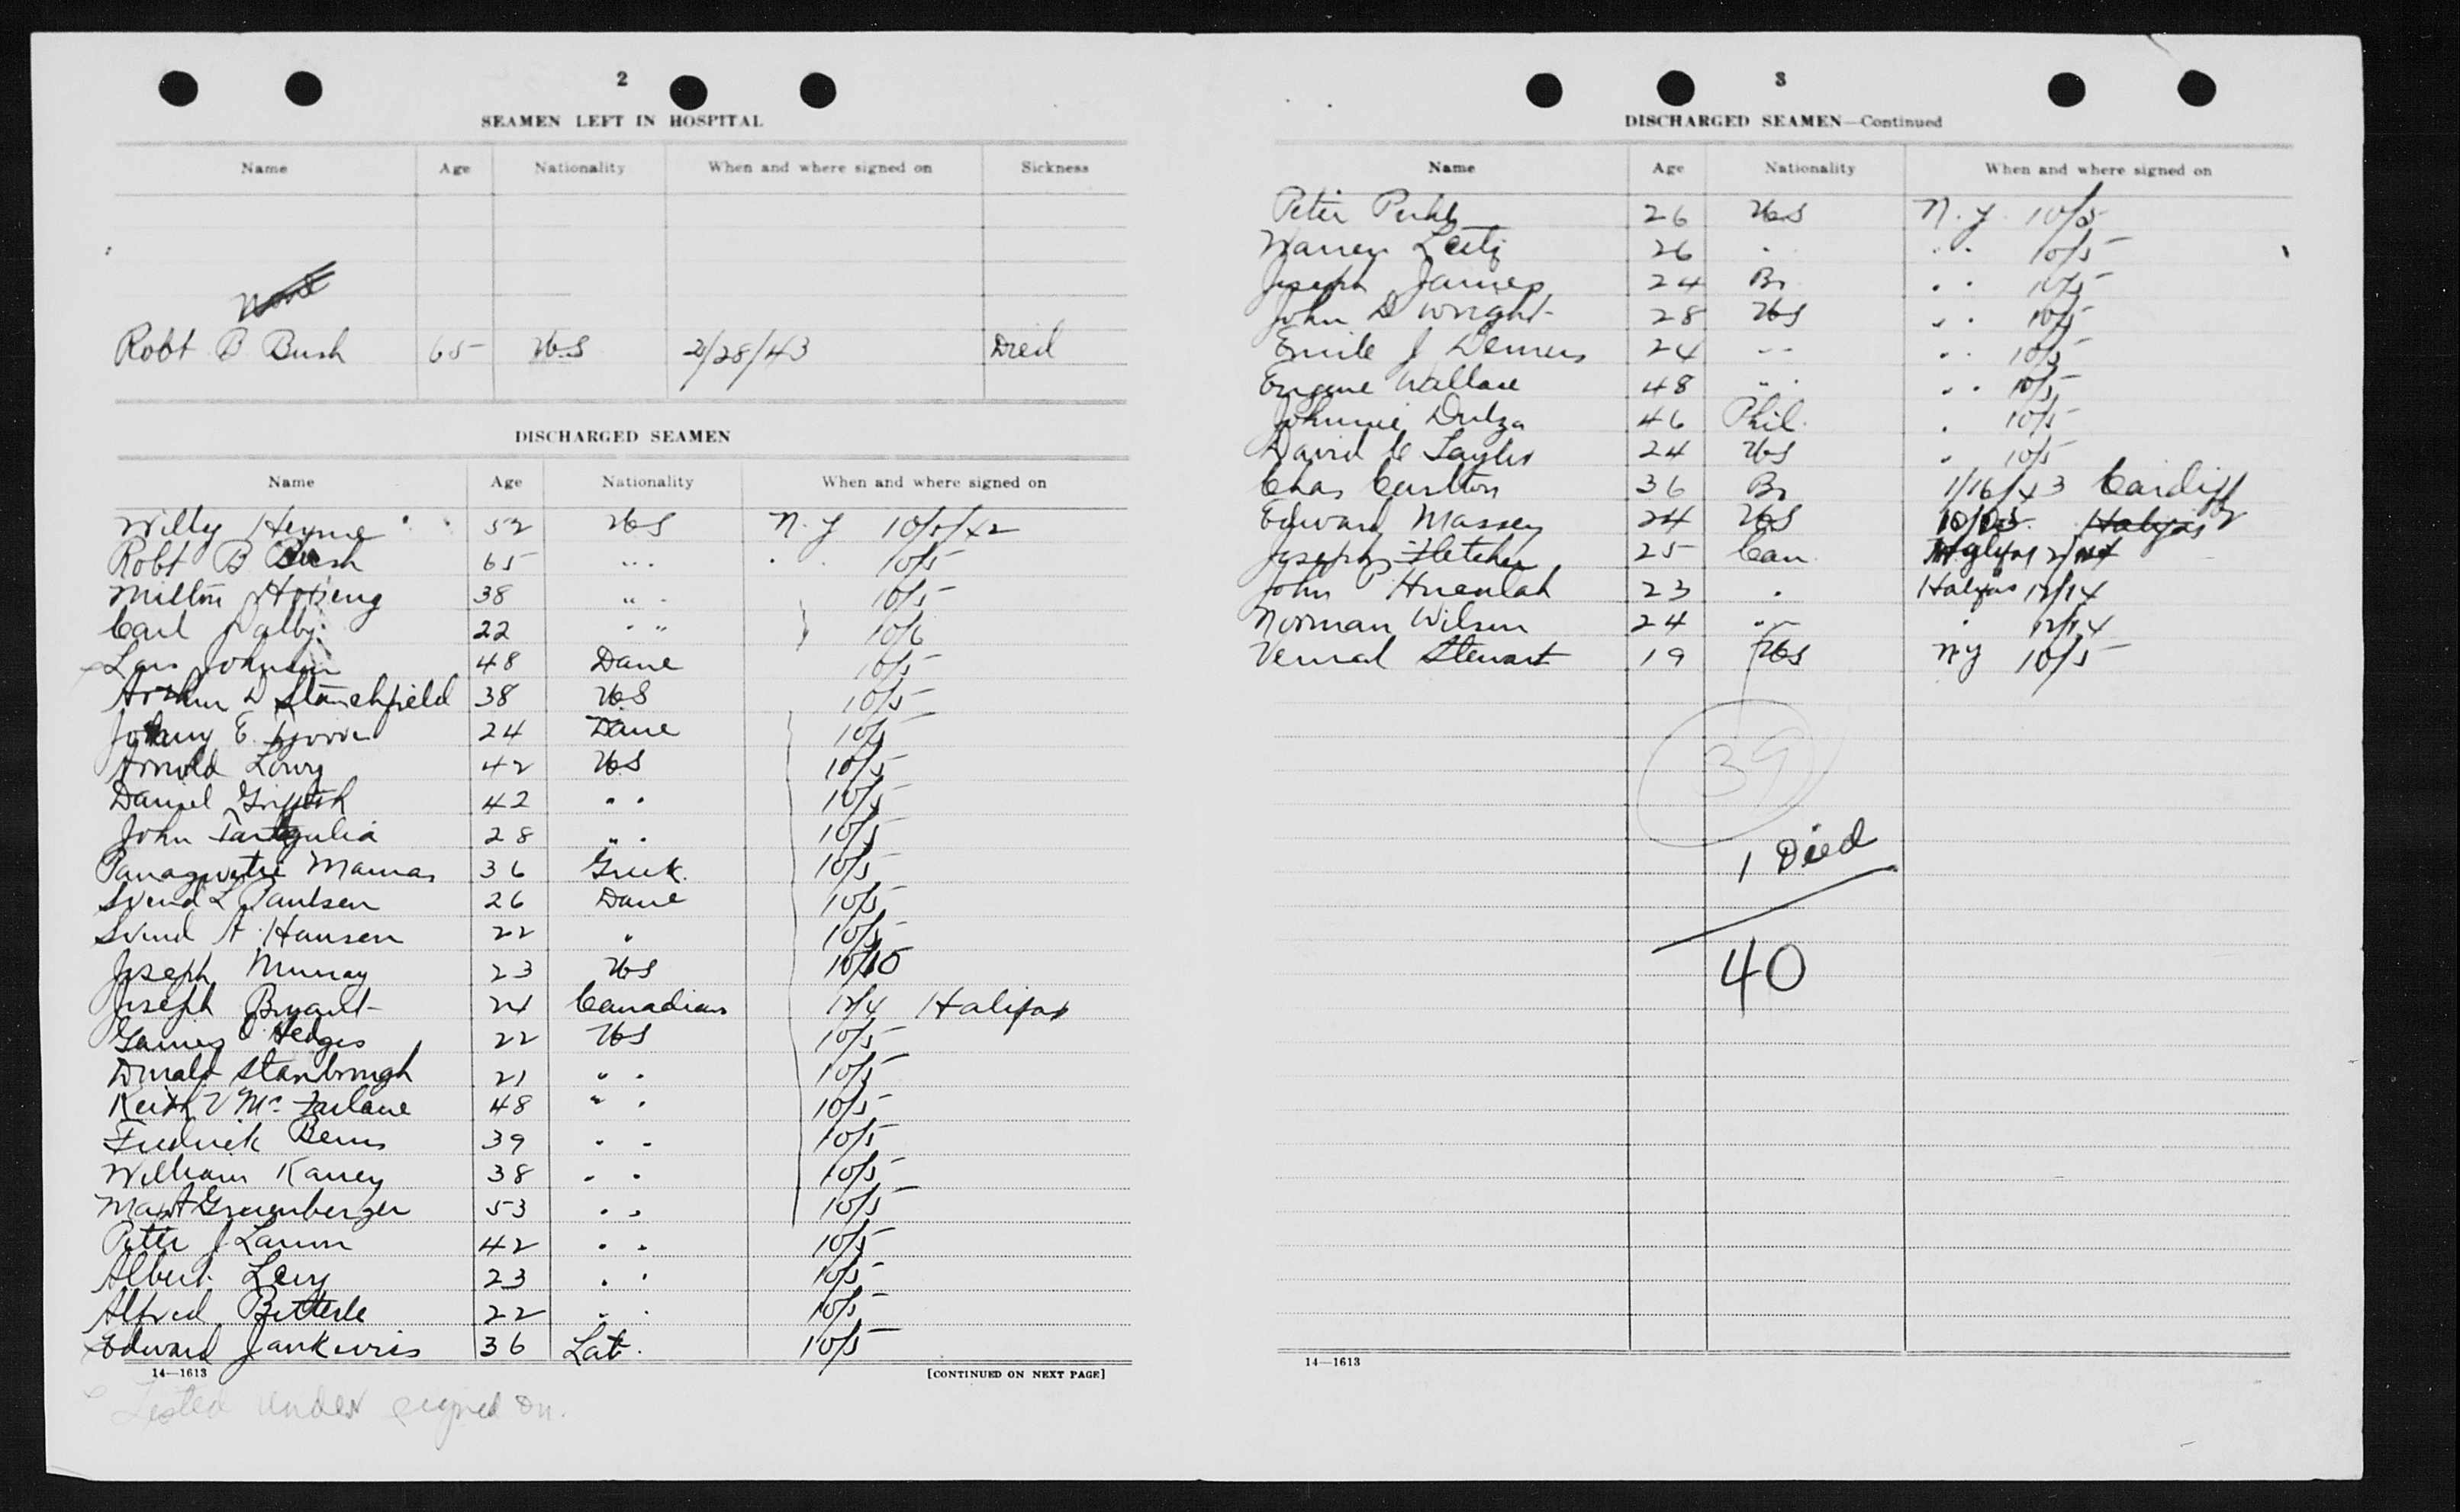 2
SEAMEN LEFT IN HOSPITAL
Name Age Nationality When and where signed on Sickness
None
Robt B Bush 65 US 2/28/43 Died
DISCHARGED SEAMEN
Name Age Nationality When and where signed on
Willy Heyne 52 US N.Y 10/5/42
Robt B Bush 65 " " 10/5
Milton 38 " " 10/5
Carl 22 " " 10/6
Lars Johnson 48 Dane 10/5
Arthur D Stanchfield 38 US 10/5
Johnny E. 24 Dane 10/5
Arnold Lowy 42 US 10/5
Daniel Griffith 42 " " 10/5
John 28 " " 10/5
Mamas 36 Greek 10/5
Svend L Paulsen 26 Dane 10/5
Svend A Hansen 22 " 10/5
Joseph Murray 23 US 10/10
Joseph Bryant 24 Canadian 12/4 Halifax
Hedges 22 US 10/5
Donald Stanbrough 21 " " 10/5
Keith V McFarlane 48 " " 10/5
Fredrick 39 " " 10/5
William 38 " " 10/5
Gruenberger 53 " " 10/5
Peter J 42 " " 10/5
Albert Levy 23 " " 10/5
Alfred Betterle 22 " " 10/5
Edward Jankuvis 36 Lat. 10/5
14—1613 [CONTINUED ON NEXT PAGE]
Listed under signed on.
3
DISCHARGED SEAMEN—Continued
Name Age Nationality When and where signed on
Peter 26 US N.Y. 10/5
Warren 26 " " " 10/5
Joseph James 24 Br " " 10/5
John D Wright 28 US " " 10/5
Emile J Demers 24 " " " " 10/5
Eugene Wallace 48 " " " " 10/5
Johnnie Dulza 46 Phil. " 10/5
David C Taylor 24 US " 10/5
Chas Carlton 36 Br 1/16/43 Cardiff
Edward Massey 24 US Halifax
Joseph Fletcher 25 Can.
John P. 23 " Halifax 12/14
Norman Wilson 24 " " " 12/14
Vernal Stewart 19 US NY 10/5
39
1 Died
40
14—1613